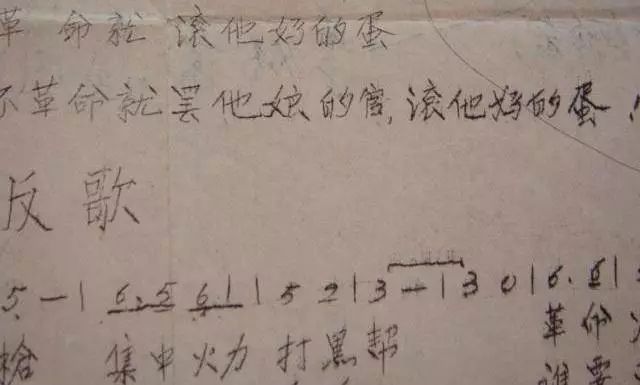 革命就滚他妈的蛋
不革命就罢他娘的官,滚他妈的蛋!
反歌
5 - | 6.5 6 1 | 5 2 | 3 - | 3 0 | 6. 6 |
枪 集中火力 打黑帮 革命
谁要